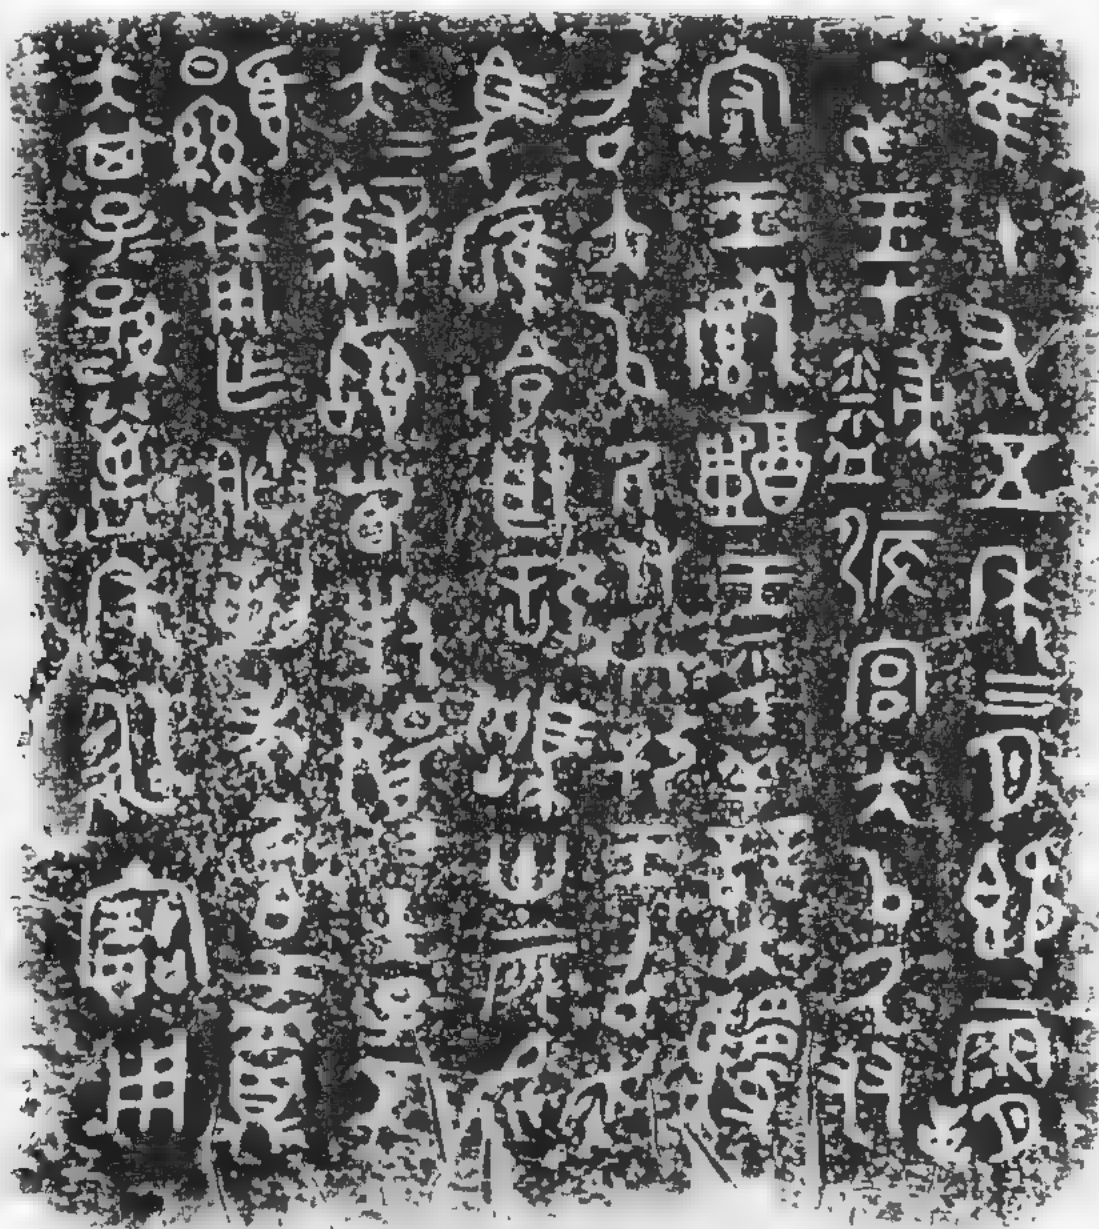 隹十又五年三月既霸丁
亥王才糱侲宮大以厥友
守王鄉醴王乎善夫騪
召大以厥友入攼王召走
馬雁令取誰騆卅二匹易
大拜稽首對揚天子不
顯休用乍朕剌考己白盂鼎
大其子子孫孫萬年永寶用